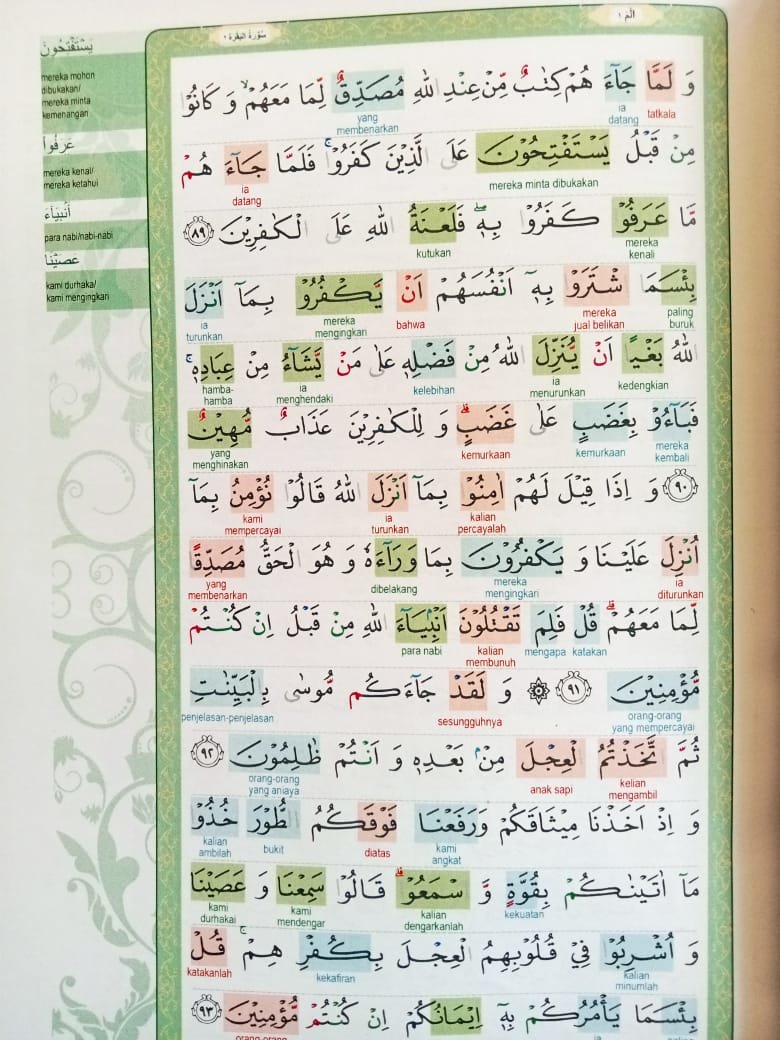 الٓمٓ ١
سُوْرَةُ الْبَقَرَةِ ٢
وَ لَمَّا جَآءَ هُمْ كِتٰبٌ مِّنْ عِنْدِ اللهِ مُصَدِّقٌ لِّمَا مَعَهُمْۙ وَ كَانُوْا
yang membenarkan ia datang tatkala
مِنْ قَبْلُ يَسْتَفْتِحُوْنَ عَلَى الَّذِيْنَ كَفَرُوْاۚ فَلَمَّا جَآءَ هُمْ
ia datang mereka minta dibukakan
مَّا عَرَفُوْا كَفَرُوْا بِهٖۖ فَلَعْنَةُ اللهِ عَلَى الْكٰفِرِيْنَ ٨٩
kutukan mereka kenali
بِئْسَمَا اشْتَرَوْا بِهٖٓ اَنْفُسَهُمْ اَنْ يَّكْفُرُوْا بِمَآ اَنْزَلَ
ia turunkan mereka mengingkari bahwa mereka jual belikan paling buruk
اللهُ بَغْيًا اَنْ يُّنَزِّلَ اللهُ مِنْ فَضْلِهٖ عَلٰى مَنْ يَّشَآءُ مِنْ عِبَادِهٖۚ
hamba-hamba ia menghendaki kelebihan ia menurunkan kedengkian
فَبَآءُوْ بِغَضَبٍ عَلٰى غَضَبٍۗ وَ لِلْكٰفِرِيْنَ عَذَابٌ مُّهِيْنٌ
yang menghinakan kemurkaan kemurkaan mereka kembali
٩٠ وَ اِذَا قِيْلَ لَهُمْ اٰمِنُوْا بِمَآ اَنْزَلَ اللهُ قَالُوْا نُؤْمِنُ بِمَآ
kami mempercayai ia turunkan kalian percayalah
اُنْزِلَ عَلَيْنَا وَ يَكْفُرُوْنَ بِمَا وَرَآءَهٗ وَ هُوَ الْحَقُّ مُصَدِّقًا
yang membenarkan dibelakang mereka mengingkari ia diturunkan
لِّمَا مَعَهُمْۗ قُلْ فَلِمَ تَقْتُلُوْنَ اَنْۢبِيَآءَ اللهِ مِنْ قَبْلُ اِنْ كُنْتُمْ
para nabi kalian membunuh mengapa katakan
مُّؤْمِنِيْنَ ٩١ ۞ وَ لَقَدْ جَآءَكُم مُّوسٰى بِالْبَيِّنٰتِ
penjelasan-penjelasan sesungguhnya orang-orang yang mempercayai
ثُمَّ اتَّخَذْتُمُ الْعِجْلَ مِنْۢ بَعْدِهٖ وَ اَنْتُمْ ظٰلِمُوْنَ ٩٢
orang-orang yang aniaya anak sapi kelian mengambil
وَ اِذْ اَخَذْنَا مِيْثَاقَكُمْ وَرَفَعْنَا فَوْقَكُمُ الطُّوْرَ خُذُوْا
kalian ambilah bukit diatas kami angkat
مَآ اٰتَيْنٰكُمْ بِقُوَّةٍ وَّ اسْمَعُوْاۗ قَالُوْا سَمِعْنَا وَ عَصَيْنَا
kami durhakai kami mendengar kalian dengarkanlah kekuatan
وَ اُشْرِبُوْا فِيْ قُلُوْبِهِمُ الْعِجْلَ بِكُفْرِ هِمْۚ قُلْ
katakanlah kekafiran kalian minumlah
بِئْسَمَا يَأْمُرُكُمْ بِهٖٓ اِيْمَانُكُمْ اِنْ كُنْتُمْ مُّؤْمِنِيْنَ ٩٣
يَسْتَفْتِحُوْنَ
mereka mohon
dibukakan/
mereka minta
kemenangan
عَرَفُواْ
mereka kenal/
mereka ketahui
أَنْبِيَآءَ
para nabi/nabi-nabi
عَصَيْنَا
kami durhaka/
kami mengingkari